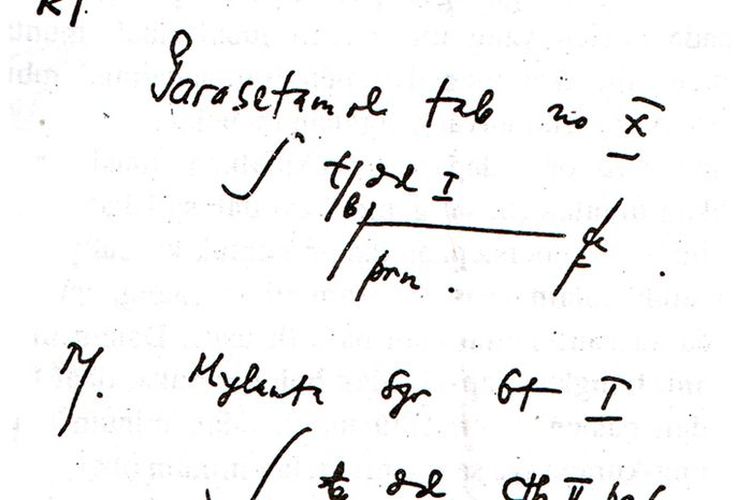 R/.
Parasetamol tab no X
∫ t/6 dd I
prn.
R/. Mylanta syr bt I
∫ dd cth II